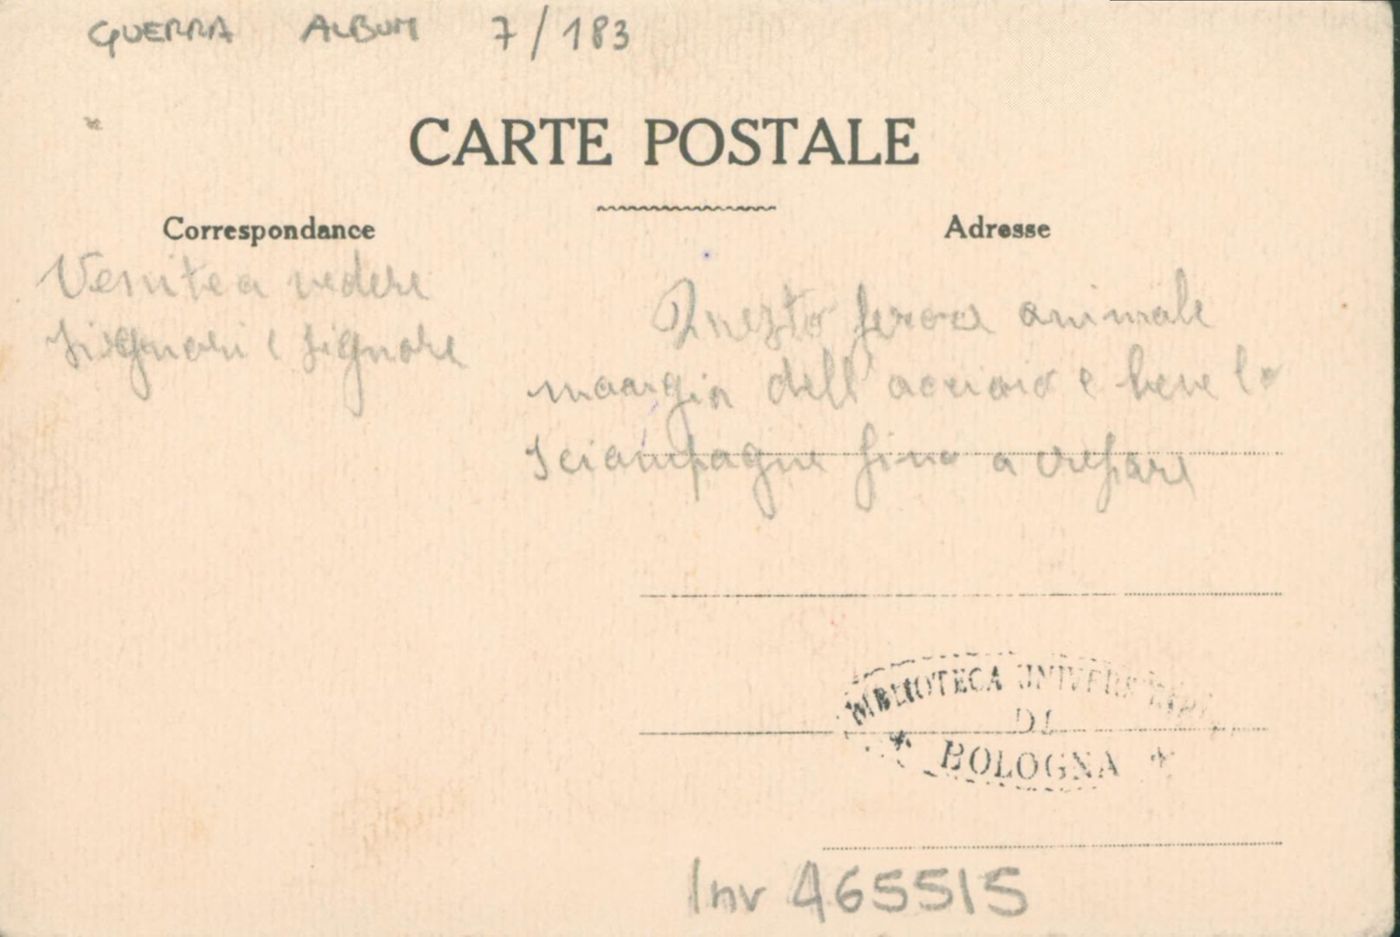 GUERRA ALBUM 7/183
CARTE POSTALE
Correspondance
Adresse
Venite a vedere
Signori e Signore
Questo feroce animale
mangia dell'acciaio e beve lo
sciampagne fino a crepare
BIBLIOTECA UNIVERSITARIA
DI
BOLOGNA
Inv 465515